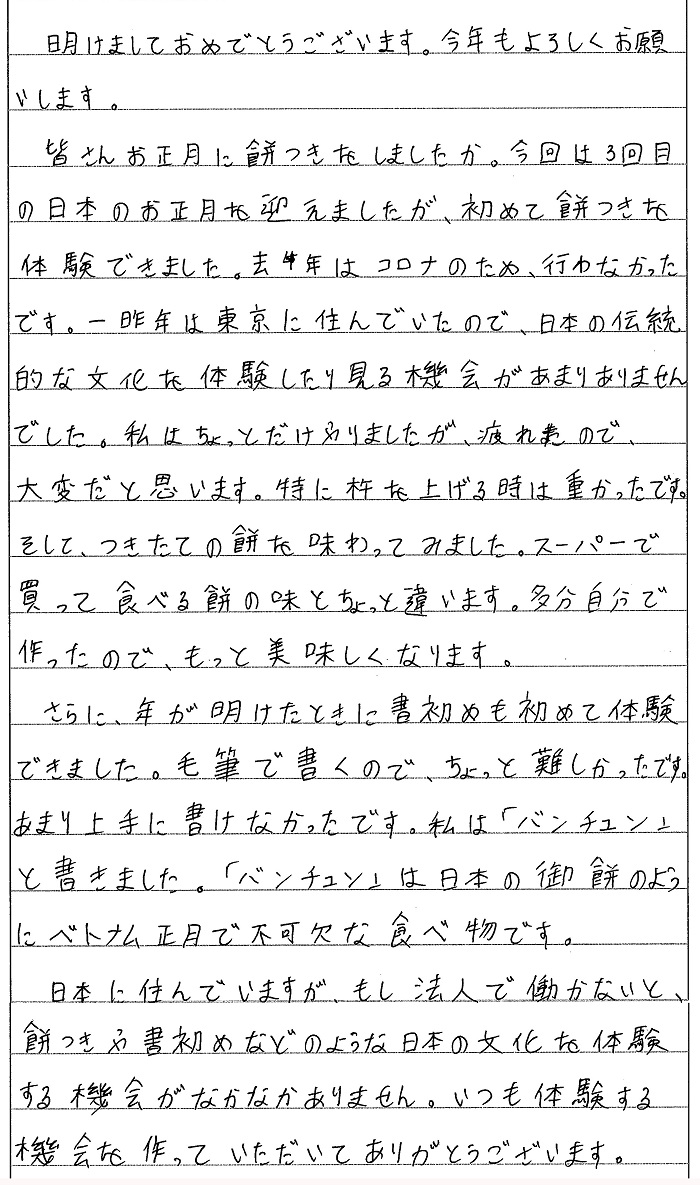 明けましておめでとうございます。今年もよろしくお願
いします。
皆さんお正月に餅つきをしましたか。今回は3回目
の日本のお正月を迎えましたが、初めて餅つきを
体験できました。去年はコロナのため、行わなかった
です。一昨年は東京に住んでいたので、日本の伝統
的な文化を体験したり見る機会があまりありません
でした。私はちょっとだけやりましたが、疲れたので、
大変だと思います。特に杵を上げる時は重かったです。
そして、つきたての餅を味わってみました。スーパーで
買って食べる餅の味とちょっと違います。多分自分で
作ったので、もっと美味しくなります。
さらに、年が明けたときに書初めも初めて体験
できました。毛筆で書くので、ちょっと難しかったです。
あまり上手に書けなかったです。私は「バンチュン」
と書きました。「バンチュン」は日本の御餅のよう
にベトナム正月で不可欠な食べ物です。
日本に住んでいますが、もし法人で働かないと、
餅つきや書初めなどのような日本の文化を体験
する機会がなかなかありません。いつも体験する
機会を作っていただいてありがとうございます。